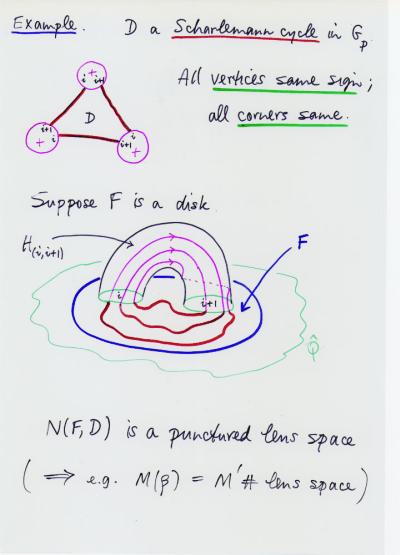 Example. D a Scharlemann cycle in G_P.
All vertices same sign;
all corners same.
+
i i+1
D
i+1 i
+ i+1 i +
Suppose F is a disk.
H(i,i+1)
F
i i+1
Q̂
N(F,D) is a punctured lens space
( ⟹ e.g. M(β) = M' # lens space )